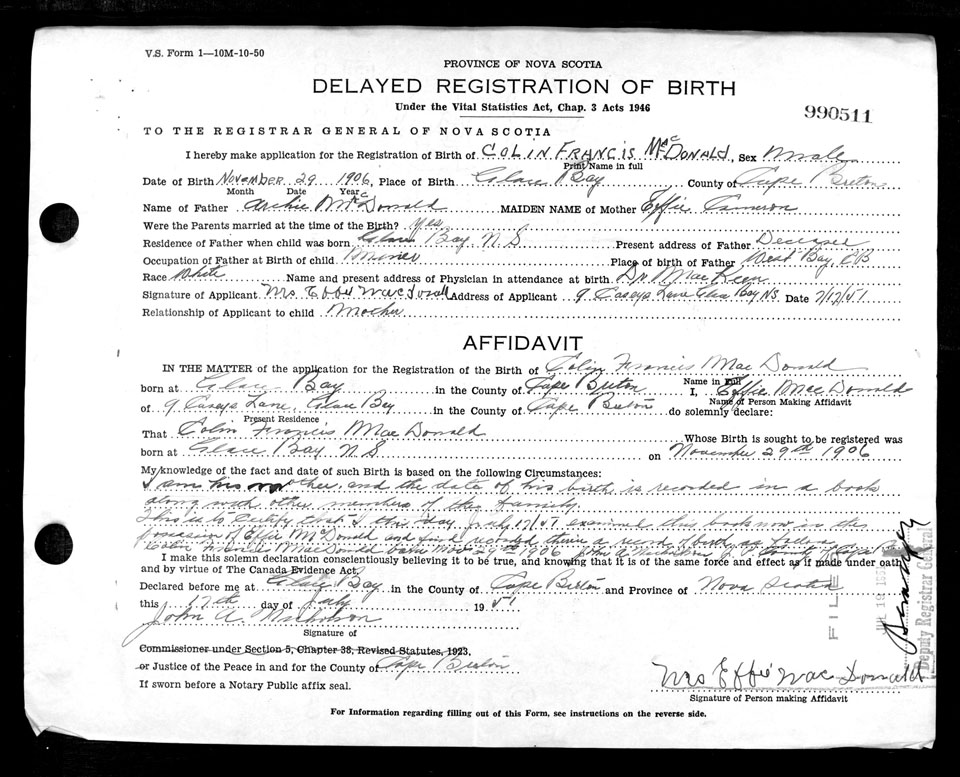 V.S. Form 1—10M-10-50
PROVINCE OF NOVA SCOTIA
DELAYED REGISTRATION OF BIRTH
Under the Vital Statistics Act, Chap. 3 Acts 1946
990511
TO THE REGISTRAR GENERAL OF NOVA SCOTIA
I hereby make application for the Registration of Birth of COLIN FRANCIS McDONALD, Sex Male
Print Name in full
Date of Birth November 29 1906, Place of Birth Glace Bay County of Cape Breton
Month Date Year
Name of Father Archie McDonald MAIDEN NAME of Mother Effie Cameron
Were the Parents married at the time of the Birth? Yes
Residence of Father when child was born Glace Bay N.S Present address of Father Deceased
Occupation of Father at Birth of child Miner Place of birth of Father West Bay, CB
Race White Name and present address of Physician in attendance at birth Dr MacKeen
Signature of Applicant Mrs Effie MacDonald Address of Applicant 9 Caseys Lane Glace Bay NS Date 7/17/51
Relationship of Applicant to child Mother
AFFIDAVIT
IN THE MATTER of the application for the Registration of the Birth of Colin Francis MacDonald
Name in Full
born at Glace Bay in the County of Cape Breton I, Effie MacDonald
Name of Person Making Affidavit
of 9 Caseys Lane, Glace Bay in the County of Cape Breton do solemnly declare:
Present Residence
That Colin Francis MacDonald Whose Birth is sought to be registered was
born at Glace Bay N.S on November 29th 1906
My knowledge of the fact and date of such Birth is based on the following Circumstances:
I am his mother, and the date of his birth is recorded in a book
along with other members of the family.
This is to certify that I this day July 17/51 examined this book now in the
possession of Effie McDonald and find recorded therein a record of birth as follows
Colin Francis MacDonald born Nov 29th 1906 John A Nicholson
I make this solemn declaration conscientiously believing it to be true, and knowing that it is of the same force and effect as if made under oath
and by virtue of The Canada Evidence Act.
Declared before me at Glace Bay in the County of Cape Breton and Province of Nova Scotia
this 17th day of July 1951
John A. Nicholson
Signature of
Commissioner under Section 5, Chapter 38, Revised Statutes, 1923,
or Justice of the Peace in and for the County of Cape Breton
If sworn before a Notary Public affix seal.
Mrs Effie MacDonald
Signature of Person making Affidavit
For Information regarding filling out of this Form, see instructions on the reverse side.
FILED
JUL 19 1951
Deputy Registrar General